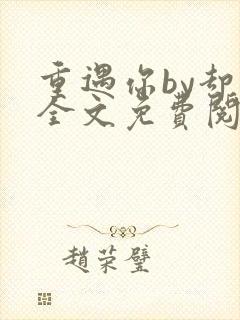 重遇你by却
全文免費閱
趙荣璧